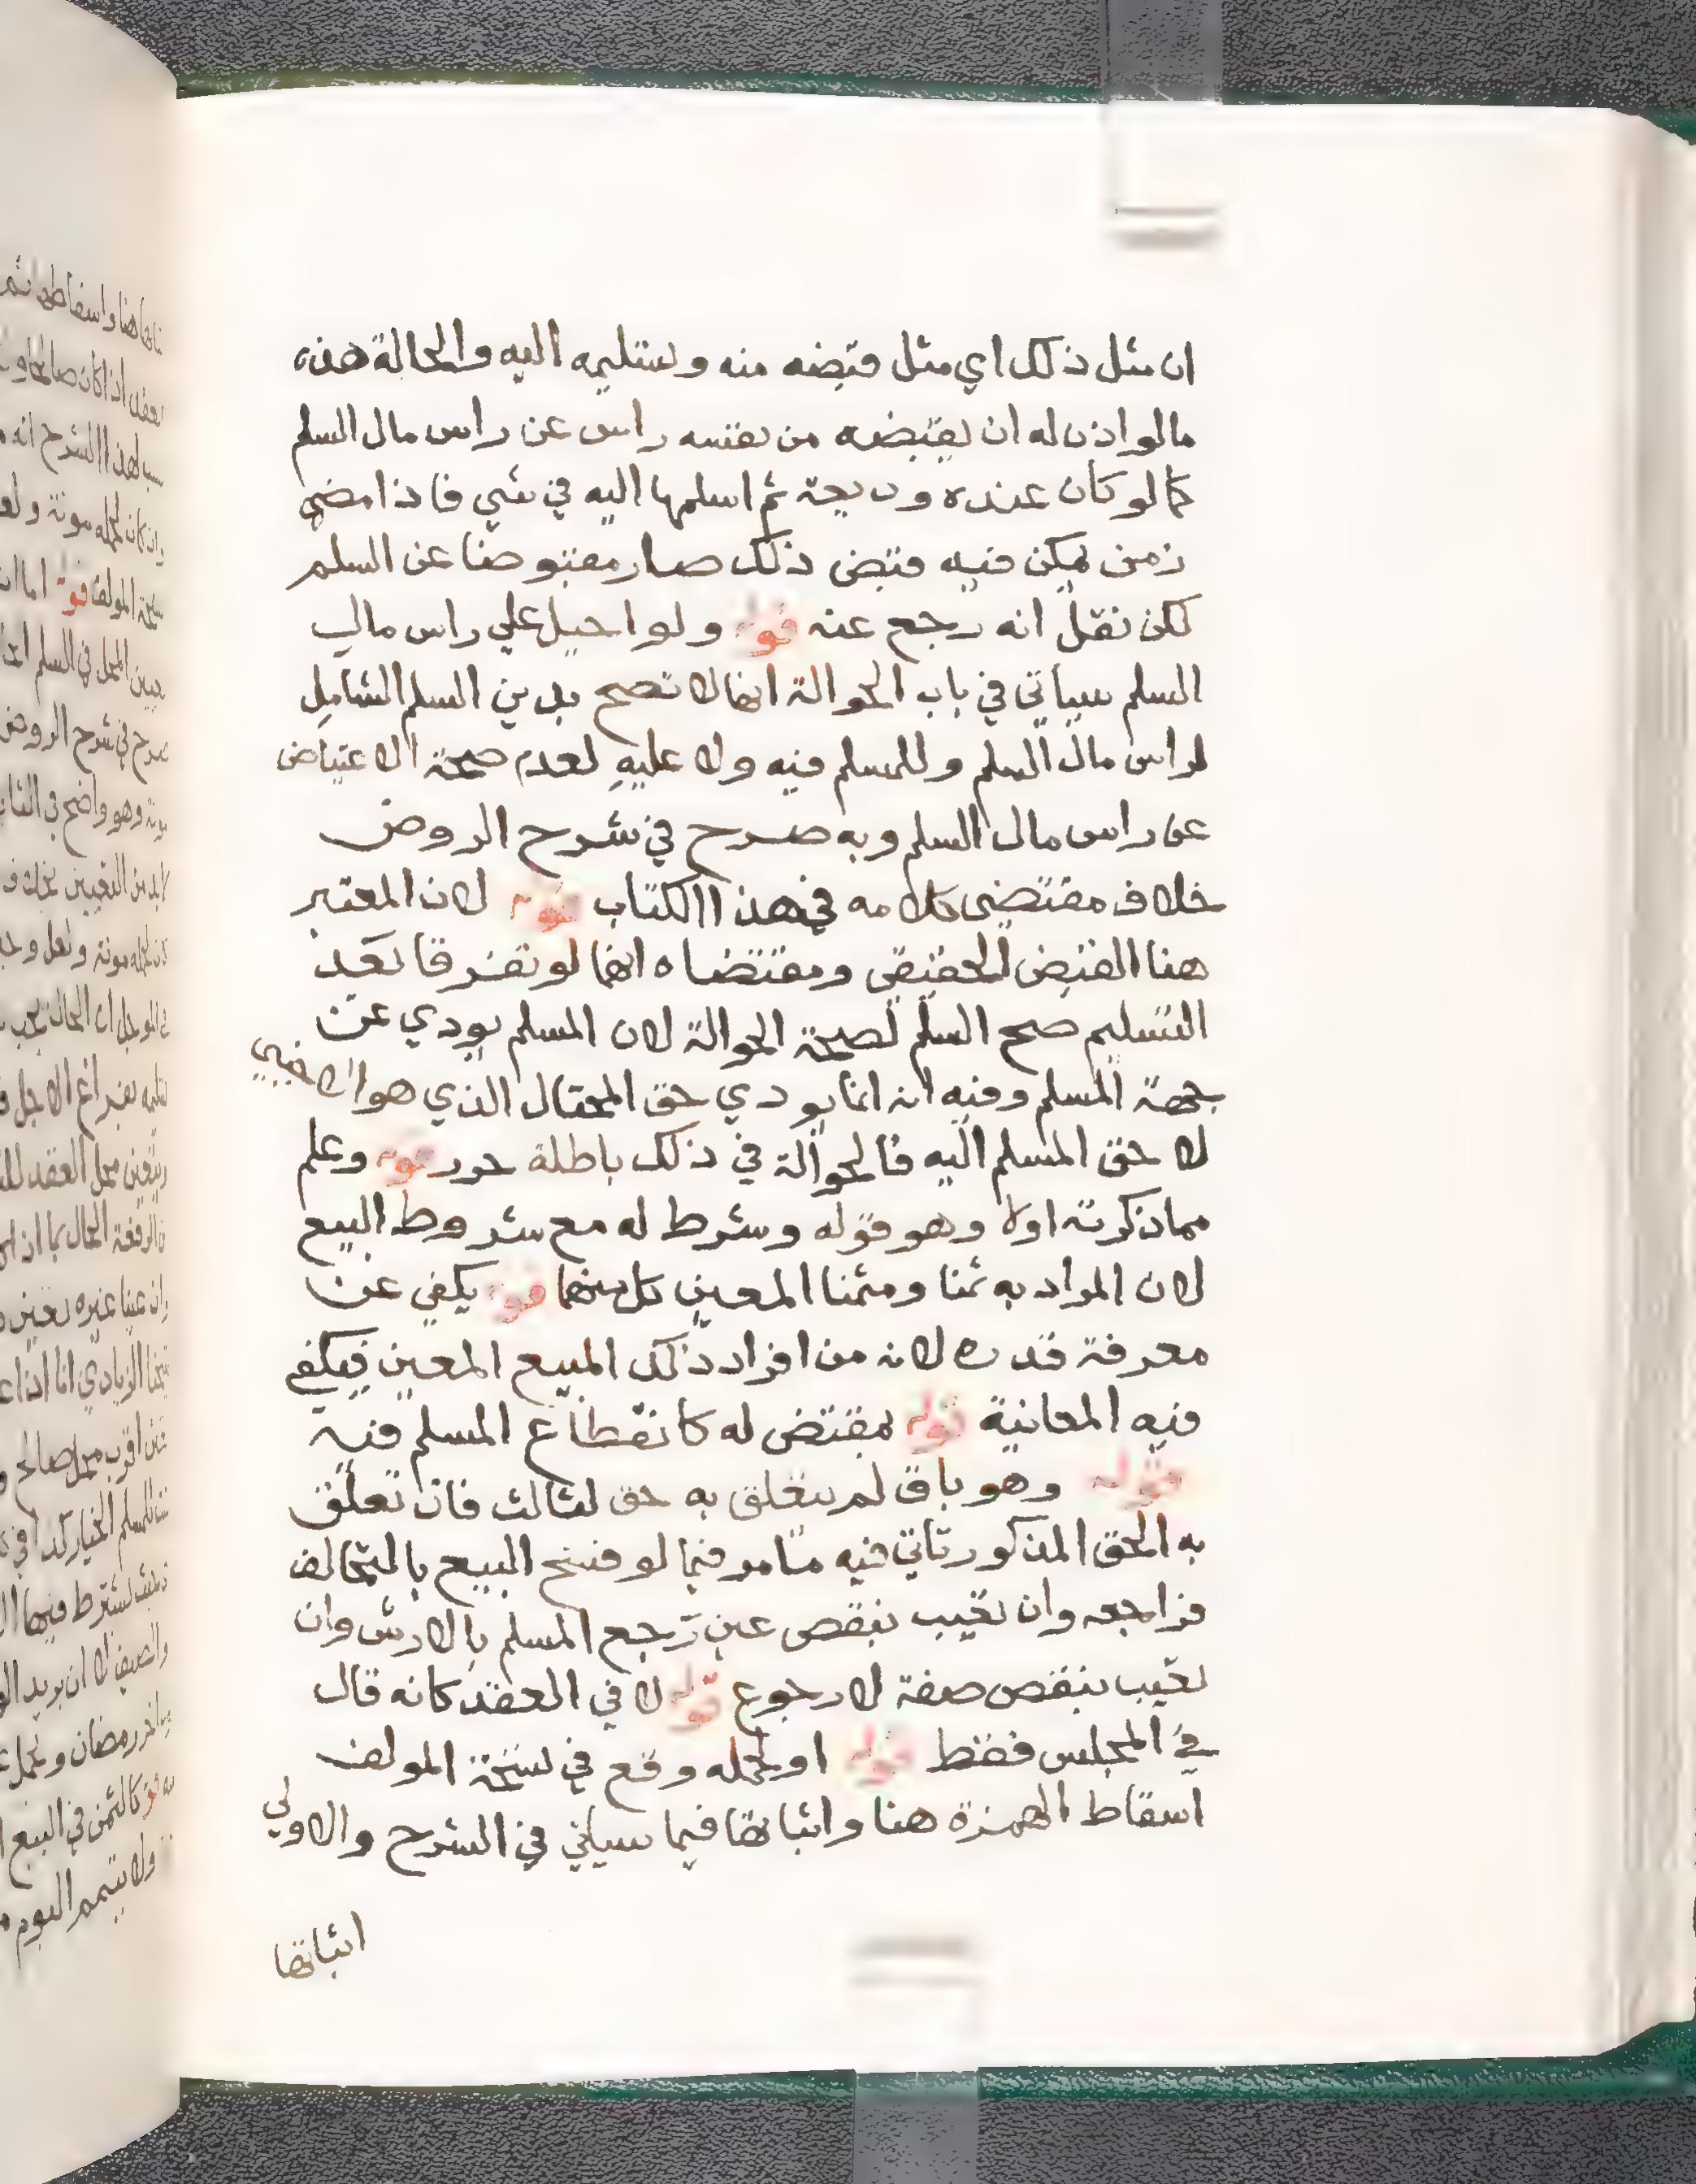 ان مثل ذلك اي مثل قبضه منه وتسليمه اليه والحالة هذه
مالو اذن له ان يقبضه من نفسه راس عن راس مال السلم
كما لو كان عنده وديعة ثم اسلمها اليه في شي فاذا مضى
زمن يمكن فيه قبض ذلك صار مقبوضا عن السلم
لكن نقل انه رجع عنه قوله ولو احيل علي راس مال
السلم سياتي في باب الحوالة انها لا تصح بدين السلم الشامل
لراس مال السلم وللمسلم فيه ولا عليه لعدم صحة الاعتياض
عن راس مال السلم وبه صرح في شرح الروض
خلاف مقتضى كلامه في هذا الكتاب قوله لان المعتبر
هنا القبض الحقيقي ومقتضاه انهما لو تفرقا بعد
التسليم صح السلم لصحة الحوالة لان المسلم يودي عن
جهة المسلم وفيه انه انما يودي حق المحتال الذي هو الاجنبي
لا حق المسلم اليه فالحوالة في ذلك باطلة حرر قوله وعلم
مما ذكرته اولا وهو قوله وشرط له مع شروط البيع
لان المراد به ثمنا ومثمنا المعين كل منهما قوله يكفي عن
معرفة قدره لانه من افراد ذلك المبيع المعين فيكفي
فيه المعانية قوله بمقتض له كانقطاع المسلم فيه
قوله وهو باق لم يتعلق به حق لثالث فان تعلق
به الحق المذكور تاتي فيه ما مر فيما لو فسخ البيع بالتخالف
فراجعه وان تعيب بنقص عين رجع المسلم بالارش وان
تعيب بنقص صفة لا رجوع قوله لا في العقد كانه قال
في المجلس فقط قوله او لحمله وقع في نسخة المولف
اسقاط الهمزة هنا واثباتها فيما سياتي في الشرح والاولي
اثباتها